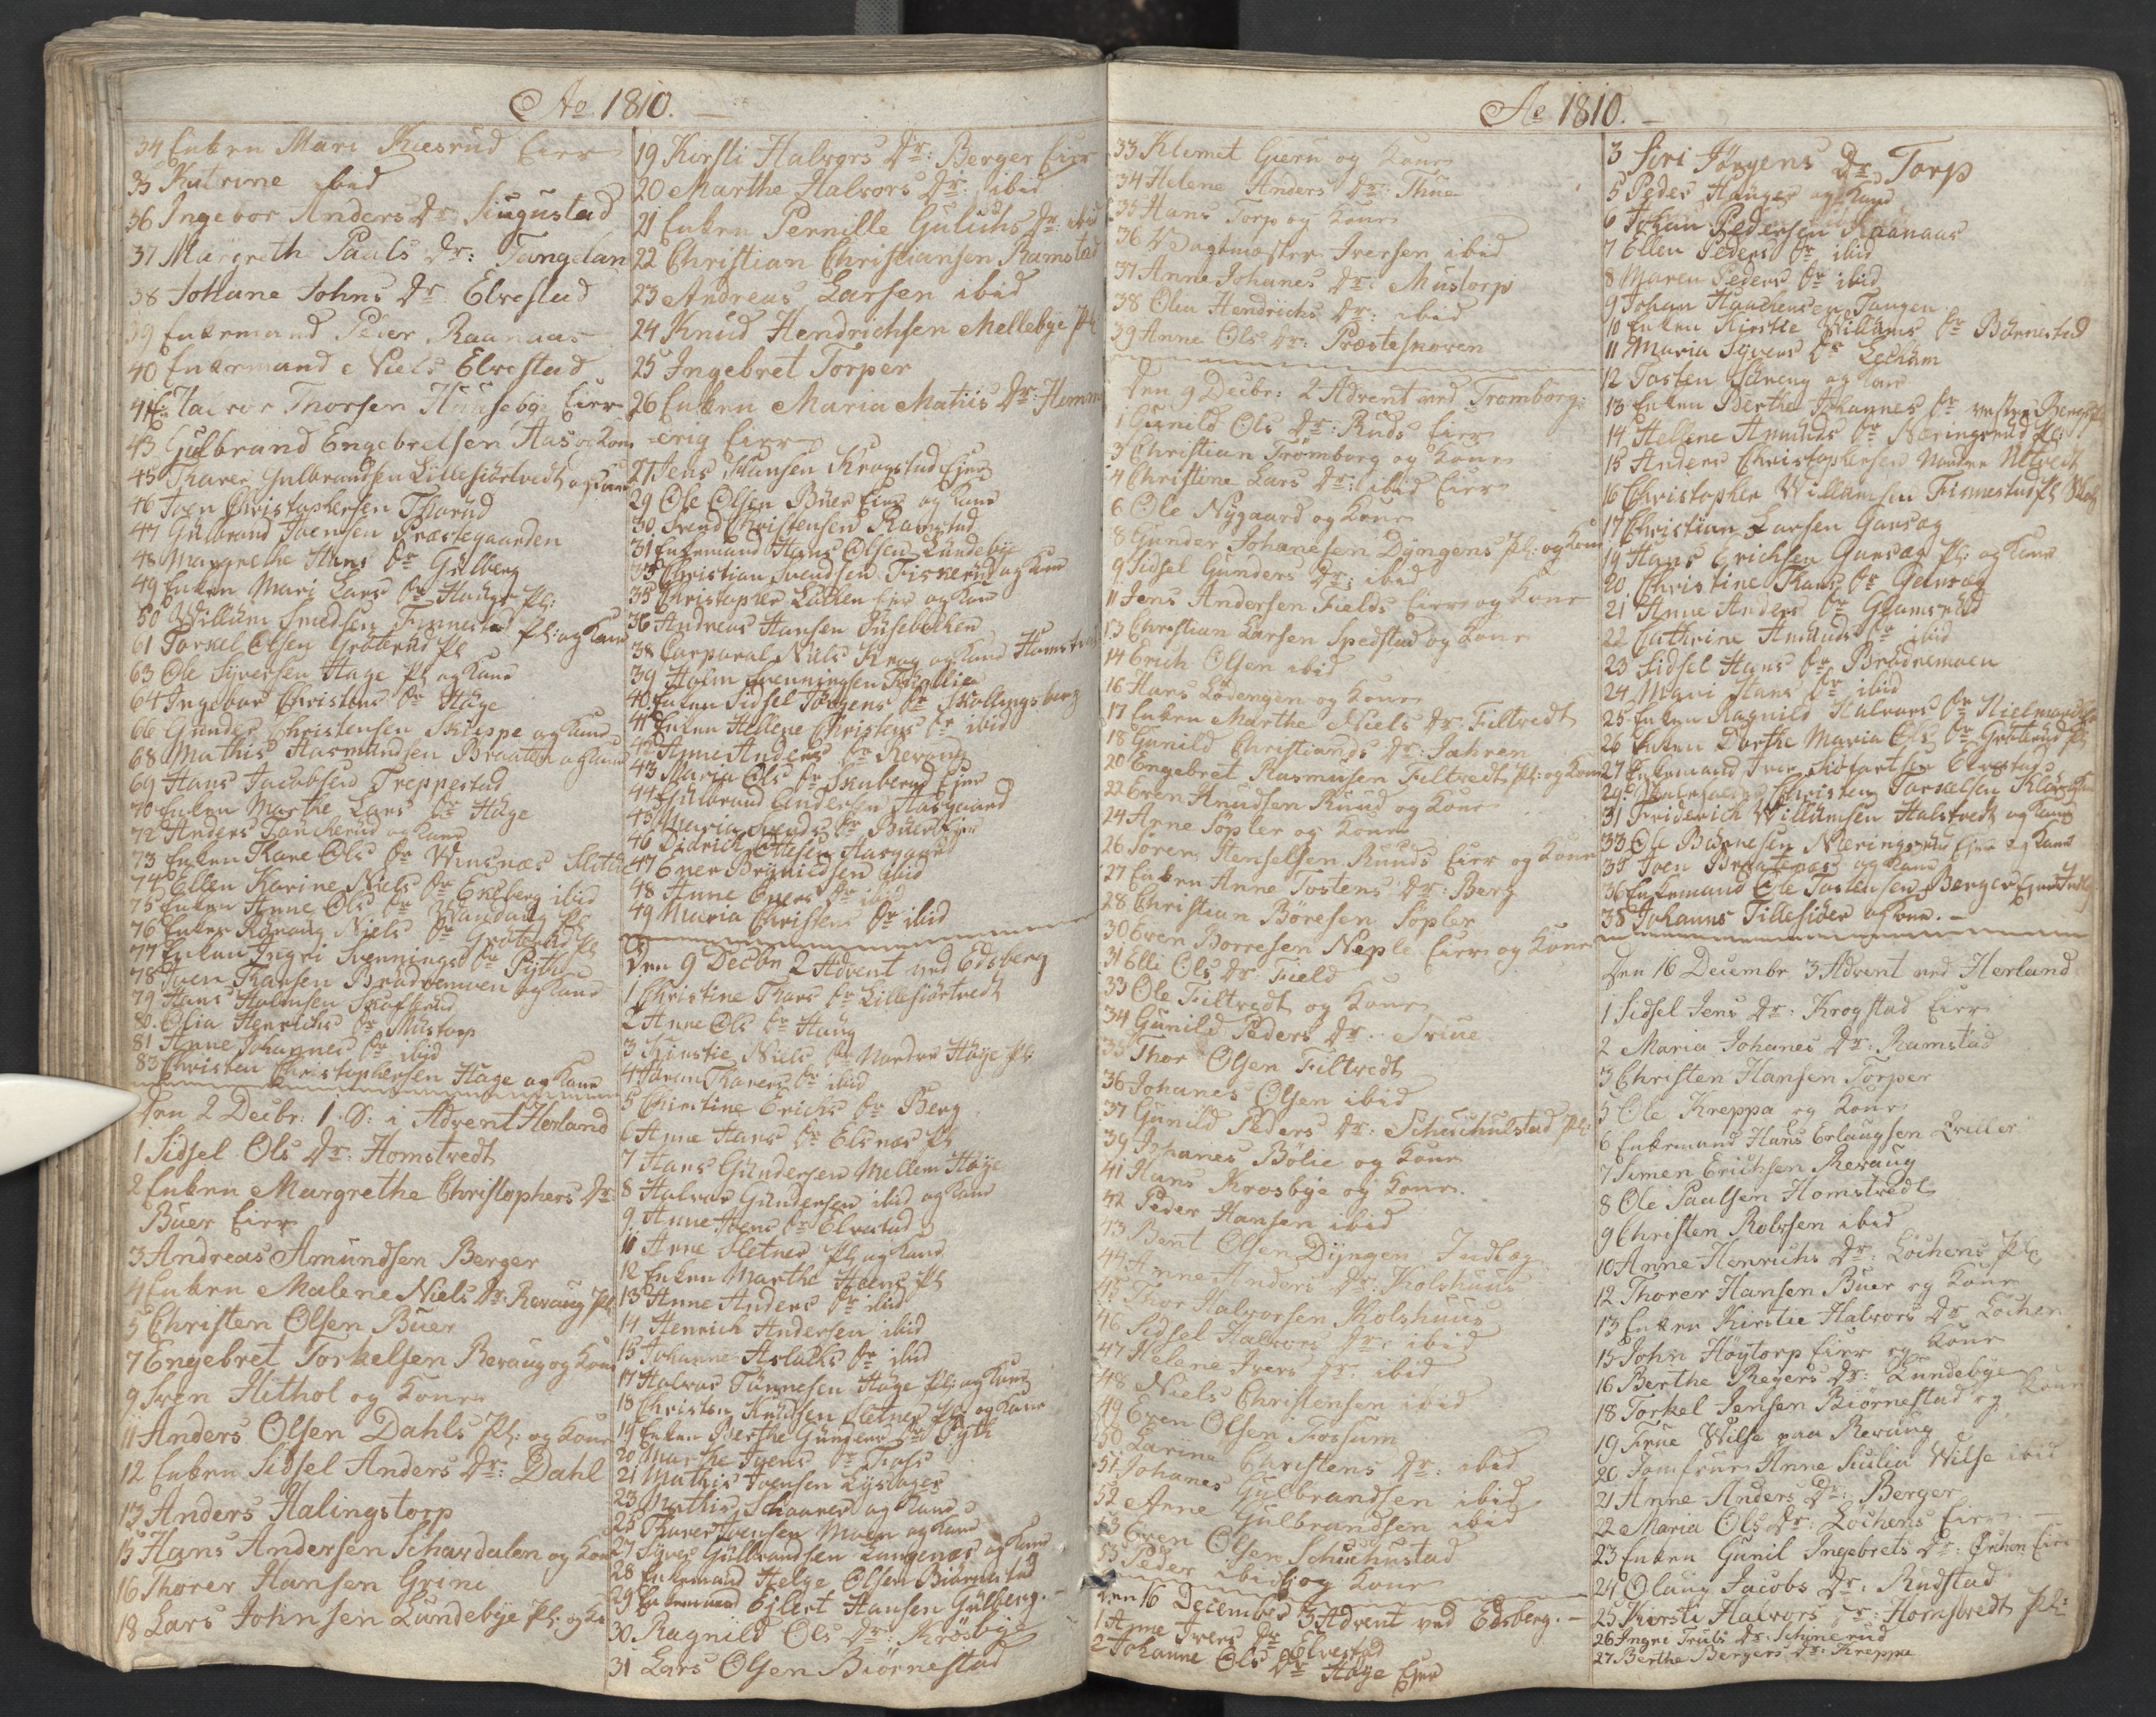 Ao 1810.
34 Enken Mari Kiesrud Eier
35 Katrine ibid
36 Ingebor Anders Dr: Siugustad
37 Margrethe Paals Dr: Tangelan
38 Johane Johns Dr: Elvestad
39 Enkemand Peder Raanaas
40 Enkemand Niels Elvestad
Halvor Thorsen Huusebye Eier
43 Gulbrand Engebretsen Aas og Kone
45 Tharer Gulbrandsen Lillesiørtvedt og Kone
46 Joen Christophersen
47 Gulbrand Joensen Præstegaarden
48 Margrethe Hans Dr Gulberg
49 Enken Mari Lars Dr Hauge Pl:
50 Willum Smedsen Finnestad Pl: og Kane
61 Torkel Olsen Grøterud Pl
63 Ole Syversen Hage Pl og Kane
64 Ingebor Christens Dr Hage
66 Gunder Christensen Skieppe og Kane
68 Mathis Aasmundsen Braaten og Kane
69 Hans Jacobsen Treppestad
70 Enken Marthe Lars Dr Häge
72 Anders og Kane
73 Enken Kare Ols Dr Winsnæs
74 Ellen Karine Niels Dr Ekeberg ibid
75 Enken Anne Ols Dr
76 Enken Rønnaug Niels Dr Grøterud Pl
77 Enken Ingri Svennings Dr Pyth
78 Joen Hansen Brødremoen og Kane
79 Hans Halvorsen
80 Olia Henrichs Dr Mustorp
81 Anne Johannes Dr ibid
83 Christen Christophersen Hage og Kane
Den 2 Decbr: 1. S: i Advent Herland
1 Sidsel Ols Dr: Homstvedt
2 Enken Margrethe Christophers Dr:
Buer Eier
3 Andreas Amundsen Berger
4 Enken Malene Niels Dr: Revaug Pl:
5 Christen Olsen Buer
7 Engebret Torkelsen Revaug og Kone
9 Sven Hithol og Kone
11 Anders Olsen Dahls Pl: og Kone
12 Enken Sidsel Anders Dr: Dahl
13 Anders Halingstorp
15 Hans Andersen Schardalen og Kone
16 Thorer Hansen Grini
18 Lars Johnsen Lundebye Pl: og Ko
19 Kirsti Halvors Dr: Berger Eier
20 Marthe Halvors Dr: ibid
21 Enken Pernille Gulichs Dr: ibid
22 Christian Christiansen Ramstad
23 Andreas Larsen ibid
24 Knud Hendrichsen Mellebye Pl:
25 Ingebret Torper
26 Enken Maria Matiis Dr: Hemm
erig Eier
27 Jens Hansen Kragstad Eier
29 Ole Olsen Buer Eier og Kane
30 Svend Christensen Ramstad
31 Enkemand Hans Olsen Lundebye
33 Christian Svendsen Fiskerud og Kane
35 Christopher Løcken Eier og Kane
36 Andreas Hansen Huseløkken
38 Corporal Niels Krog og Kane Homst
39 Holm Svenningsen
40 Enken Sidsel Jørgens Dr Skallingsberg
41 Enken Hellene Christens Dr ibid
42 Anne Anders Dr Revaug
43 Maria Ols Dr Skuberud Eier
44 Gulbrand Andersen Aasgaard
45 Maria Svends Dr Buer Eier
46 Didrich Ottesen Aasgaard
47 Ener Brynildsen ibid
48 Anne Eners Dr ibid
49 Maria Christens Dr ibid
Den 9 Decbr 2 Advent ved Edsberg
1 Christine Thars Dr Lillesiørtvedt
2 Anne Ols Dr Haug
3 Kirstie Niels Dr Nordre Høye Pl
4 Søren Tharers Dr ibid
5 Christine Erichs Dr Berg
6 Anne Hans Dr Elsnæs Pl
7 Hans Gundersen Mellem Høye
8 Halvor Gundersen ibid og Kane
9 Anne Joens Dr Elvestad
11 Arne Sletner Pl: og Kane
12 Enken Marthe Pl
13 Anne Anders Dr ibid
14 Henrich Andersen ibid
15 Johanne Aslacks Dr ibid
17 Halvor Tønnesen Høye Pl: og Kane
18 Christen Knudsen Sletner Pl og Kane
19 Enken Berthe Gunders Dr Pyth
20 Marthe Joens Dr
21 Mathis Joensen Lyslager
23 Mathis Schaarer og Kane
25 Tharer Joensen Moen og Kane
27 Syver Gulbrandsen Langenæs og Kane
28 Enkemand Helge Olsen Biørnestad
29 Enkemand Ejlert Hansen Gulberg.
30 Ragnild Ols Dr: Krosbye
31 Lars Olsen Biørnestad
Ao 1810.
33 Klemet Gieru og Kone
34 Helene Anders Dr: Thue
35 Hans Torp og Kone
36 Vagtmester Iversen ibid
37 Anne Johanes Dr: Mustorp
38 Olea Hendrichs Dr: ibid
39 Anne Ols Dr: Præstesnoren
Den 9 Decbr: 2 Advent ved Tromborg:
1 Gunild Ols Dr: Ruds Eier
3 Christian Tromborg og Kone
4 Christine Lars Dr: ibid Eier
6 Ole Nygaard og Kone
8 Gunder Johanesen Dyngens Pl: og Kone
9 Sidsel Gunders Dr: ibid
11 Jens Andersen Fields Eier og Kone
13 Christian Larsen Spedstad og Kone
14 Erich Olsen ibid
16 Hans Lødengen og Kone
17 Enken Marthe Niels Dr: Filtvedt
18 Gunild Christiands Dr: Jahren
20 Engebret Rasmusen Filtvedt Pl: og Kone
22 Even Knudsen Ruud og Kone
24 Arne Søpler og Kone
26 Søren Stenselsen Ruuds Eier og Kone
27 Enken Anne Tostens Dr: Berg
28 Christian Børesen Søpler
30 Even Borresen Neple Eier og Kone
31 Elli Ols Dr Field
33 Ole Filtvedt og Kone
34 Gunild Peders Dr: Triue
35 Thor Olsen Filtvedt
36 Johanes Olsen ibid
37 Gunild Peders Dr: Schiechulstad Pl:
39 Johanes Bolie og Kone
41 Hans Krosbye og Kone
42 Peder Hansen ibid
43 Bent Olsen Dyngen Indlæg
44 Anne Anders Dr: Kolshuus
45 Thor Halvorsen Kolshuus
46 Sidsel Halvors Dr: ibid
47 Helene Ivers Dr: ibid
48 Niels Christensen ibid
49 Even Olsen Fossum
50 Karine Christens Dr: ibid
51 Johanes Gulbrandsen ibid
52 Anne Gulbrandsen ibid
53 Even Olsen Schiechustad
55 Peder ibid og Kone
Den 16 December 3 Advent ved Edsberg.
1 Anne Ivers Dr Elvestad
2 Johanne Ols Dr Høye Eier
Ao 1810.
3 Siri Jørgens Dr Torp
5 Peder Hauger og Kand
6 Johan Pedersen Raanaas
7 Ellen Peders Dr ibid
8 Maren Peders Dr ibid
9 Johan Haachensen Tangen
10 Enken Kirstie Willums Dr Bønnestad
11 Maria Syvers Dr
12 Tosten og Kane
13 Enken Berthe Johannes Dr vestre Berg
14 Hellene Amunds Dr Næringsrud Pl:
15 Anders Christophersen Nordre Mtvedt
16 Christopher Willumsen Finnestad Pl
17 Christian Larsen Gansag
19 Hans Erichsen Gansag Pl: og Kane
20 Christine Dr Gansag
21 Anne Anders Dr Glamsrud
22 Cathrine Amunds Dr ibid
23 Sidsel Hans Dr Brødremoen
24 Mari Hans Dr ibid
25 Enken Ragnild Halvors Dr
26 Enken Dorthe Maria Ols Dr Grøterud Pl
27 Enkemand Iver Elvestad
29 Christen Torkelsen
31 Friderich Willumsen Halstvedt og Kane
33 Ole Biørnesen Næringsrud Eier og Kane
35 Joen Braatenæs og Kane
36 Enkemand Ole Tostensen Berger Eier Indlæg
38 Johanns Tillesiøer og Kone.
Den 16 Decembr 3 Advent ved Herland
1 Sidsel Jens Dr: Krogstad Eier
2 Maria Johanes Dr: Ramstad
3 Christen Hansen Torper
5 Ole Kreppa og Kone
6 Enkemand Hans Erlaugsen Qviller
7 Simen Erichsen Revaug
8 Ole Paalsen Homstvedt
9 Christen Robsen ibid
10 Anne Henrichs Dr: Løchens Pl:
12 Thorer Hansen Buer og Kone
13 Enken Kirstie Halvors Dr Løchen
15 John Høytorp Eier og Kone
16 Berthe Regers Dr: Lundebye
18 Torkel Jensen Biørnestad og Kone
19 Frue Wilse paa Revaug
20 Jomfrue Anne Siulia Wilse ibid
21 Anne Anders Dr: Berger
22 Maria Ols Dr: Løchens Eier
23 Enken Gunil Ingebrets Dr: Ørchen Eier
24 Olaug Jacobs Dr: Rudstad
25 Kirsti Halvors Dr: Homstvedt Pl:
26 Ingri Truls Dr: Schinerud
27 Berthe Bergers Dr: Kreppa